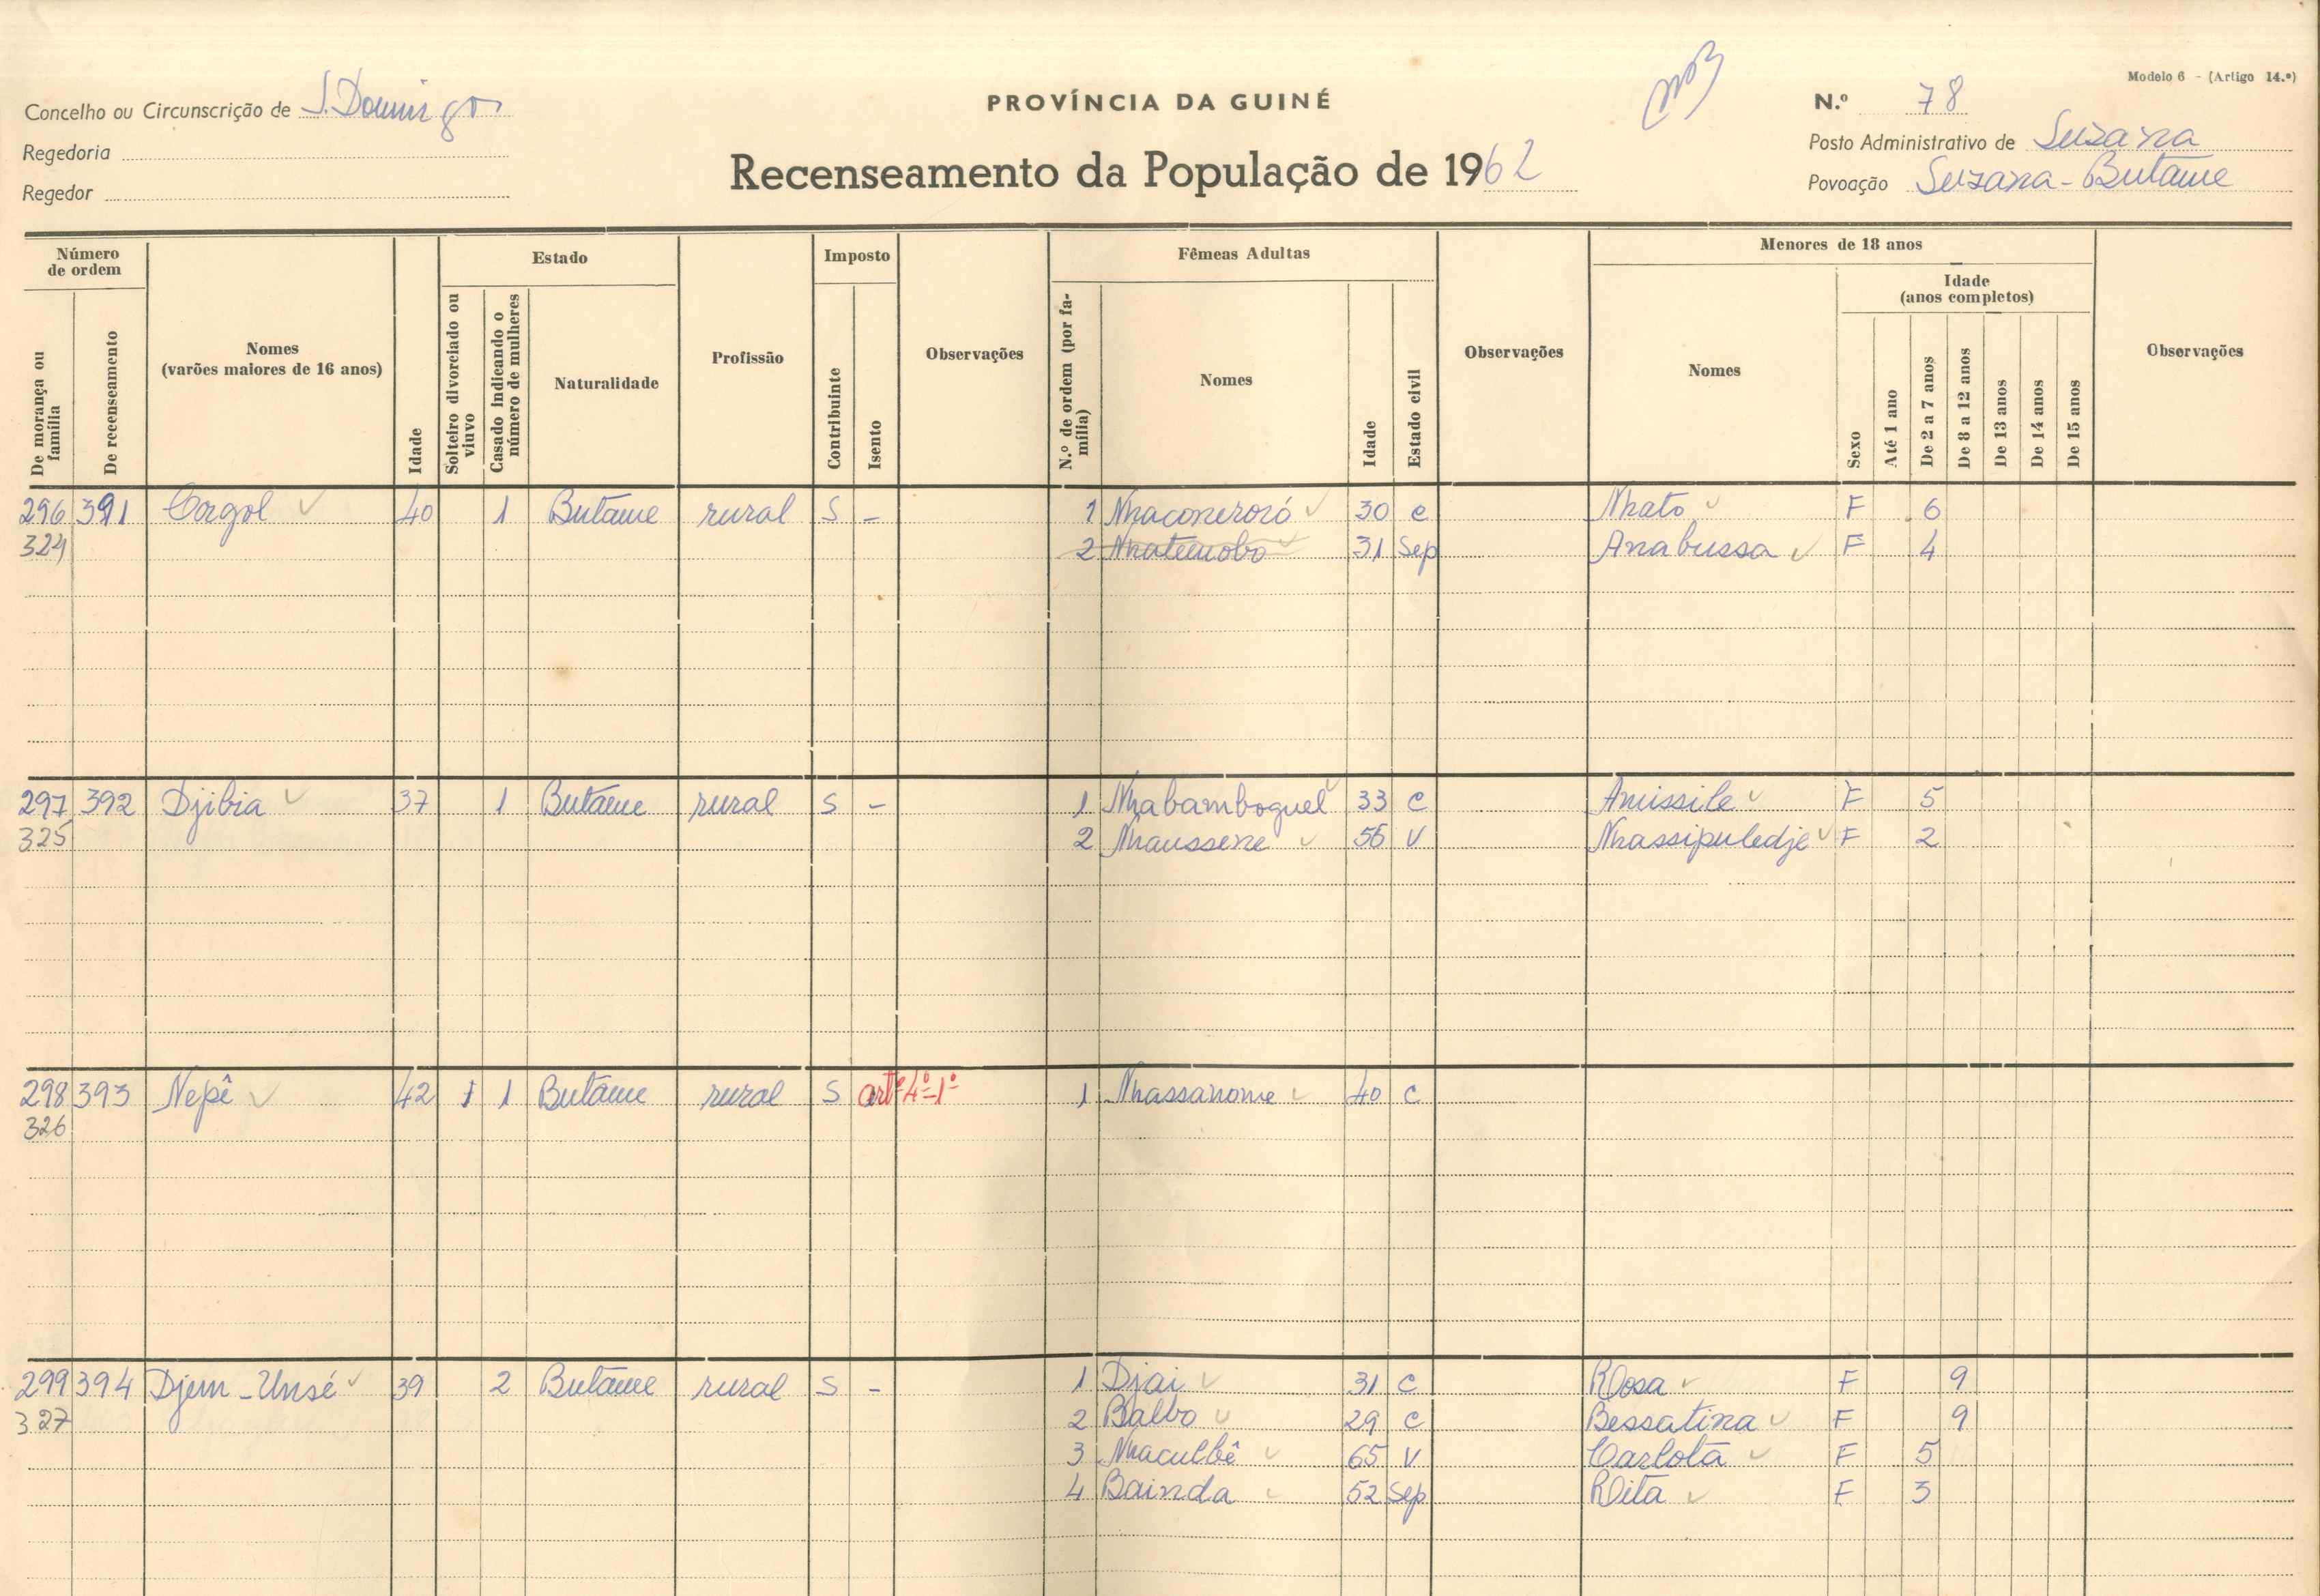 Modelo 6 - (Artigo 14.º)
Concelho ou Circunscrição de S. Domingos
PROVÍNCIA DA GUINÉ
N.º 78
Regedoria
Posto Administrativo de Suzana
Recenseamento da População de 1962
Regedor
Povoação Suzana - Butame
Número de ordem
Estado
Imposto
Fêmeas Adultas
Menores de 18 anos
Idade
(anos completos)
De morança ou família
De recenseamento
Nomes
(varões maiores de 16 anos)
Idade
Solteiro divorciado ou viuvo
Casado indicando o número de mulheres
Naturalidade
Profissão
Contribuinte
Isento
Observações
N.º de ordem (por família)
Nomes
Idade
Estado civil
Observações
Nomes
Sexo
Até 1 ano
De 2 a 7 anos
De 8 a 12 anos
De 13 anos
De 14 anos
De 15 anos
Observações
296 391 Corgol 40 1 Butame rural S - 1 Nhaconeroró 30 c Nhato F 6
324 2 Nhatemobo 31 Sep Anabussa F 4
297 392 Djibia 37 1 Butame rural S - 1 Nhabamboguel 33 c Amissile F 5
325 2 Nhaussene 56 V Nhassipuledje F 2
298 393 Nepê 42 1 1 Butame rural S artº 4º-1º 1 Nhassanome 40 c
326
299 394 Djem-Unsé 39 2 Butame rural S - 1 Djai 31 c Rosa F 9
327 2 Balbo 29 c Bessatina F 9
3 Nhaculbê 65 V Carlota F 5
4 Bainda 52 Sep Rita F 3